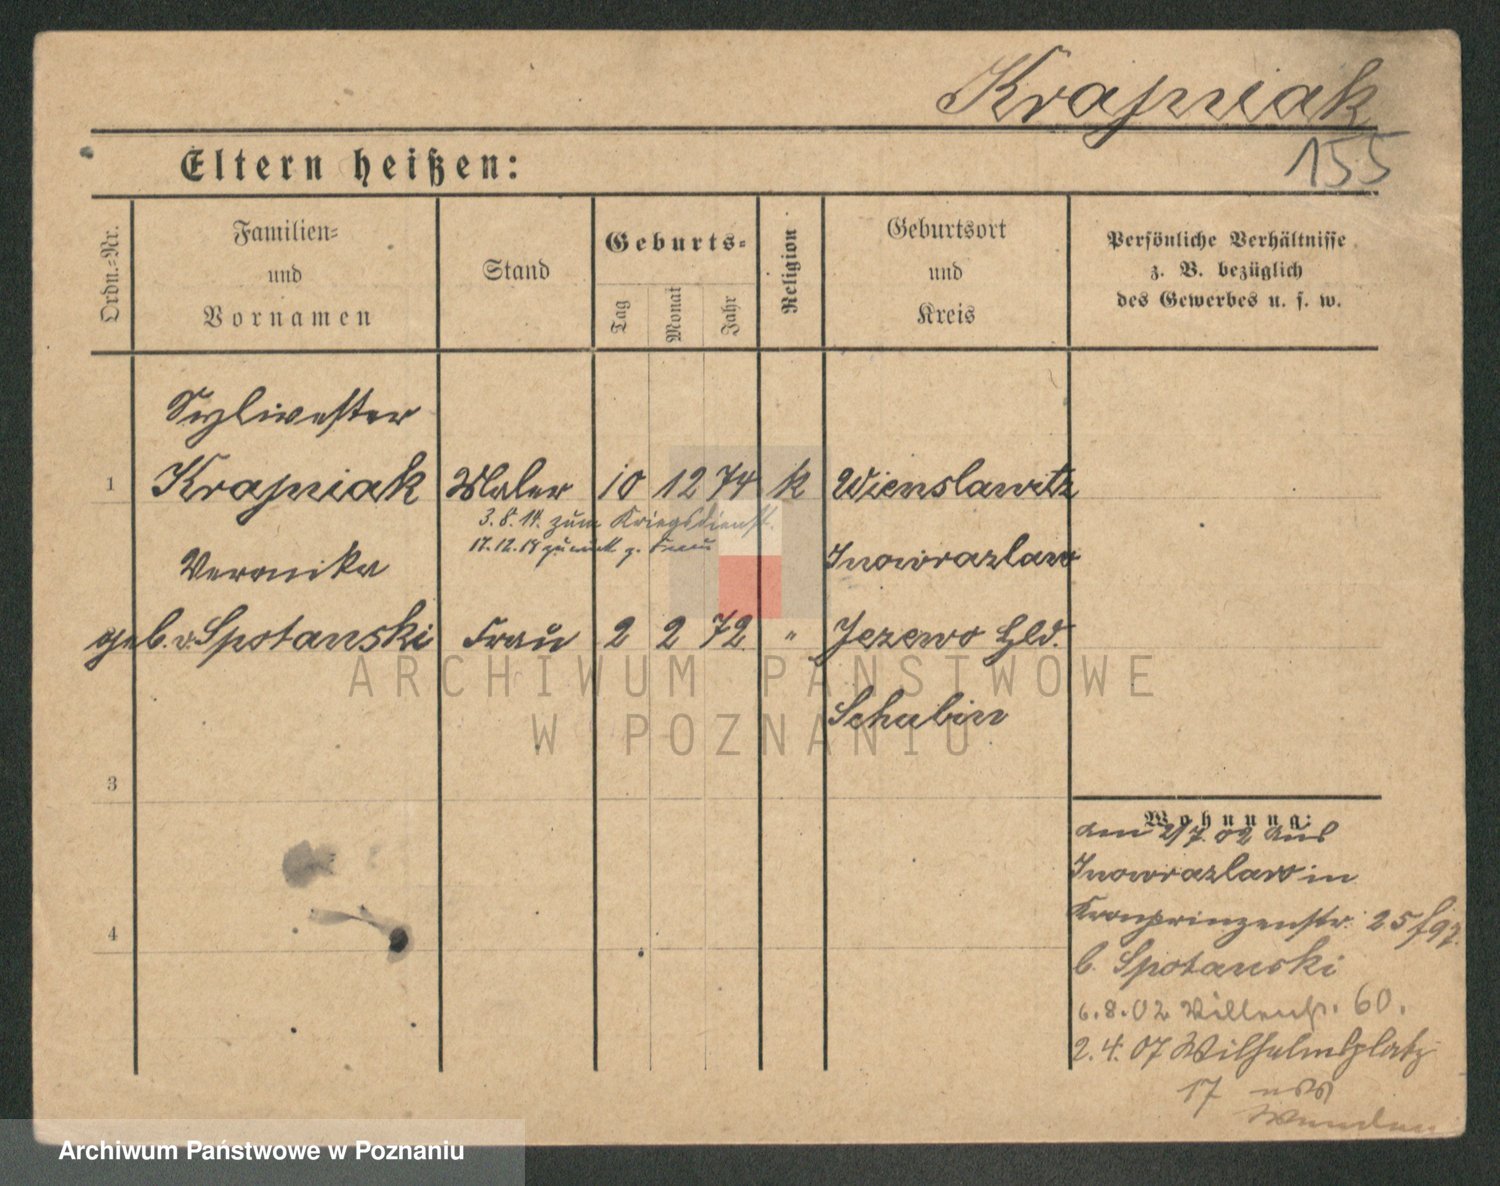 Krajniak
155
Eltern heißen:
Ordn.=Nr.
Familien=
und
Vornamen
Stand
Geburts=
Tag
Monat
Jahr
Religion
Geburtsort
und
Kreis
Persönliche Verhältnisse
z. B. bezüglich
des Gewerbes u. s. w.
Sylwester
1 Krajniak Maler 10 12 74 k Wienslawitz
3. 8. 14. zum Kriegsdienst.
17.12.18 zurück z. Frau
Veronika Inowrazlaw
geb. v. Spotanski Frau 2 2 72 " Jezewo Hld.
ARCHIWUM PAŃSTWOWE
W POZNANIU
Schubin
3
Wohnung:
am 2/7. 02 aus
Inowrazlaw in
4
Kronprinzenstr. 25
b. Spotanski
6.8.02 60.
2.4.07 Wilhelmsplatz
17
Archiwum Państwowe w Poznaniu